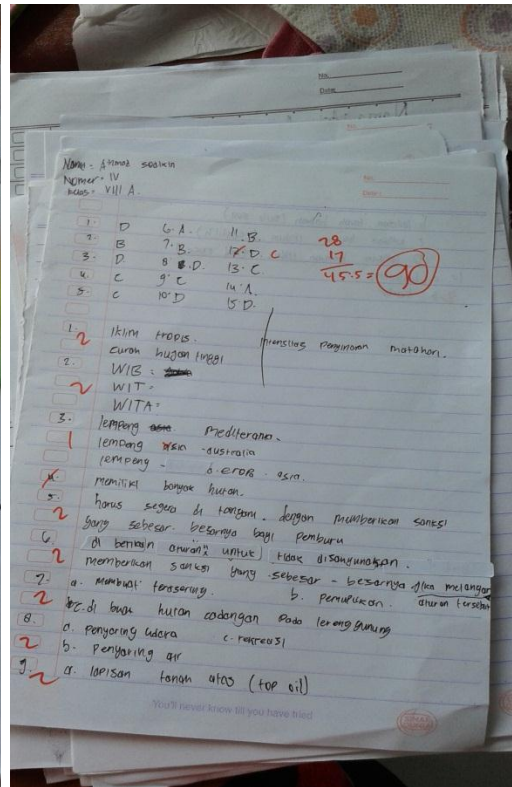 No:
Date:
Nama : Ahmad Sodikin
Nomer : IV
Kelas : VIII A.
No:
Date:
1. D 6. A. 11. B.
2. B 7. B. 12. D C
3. D. 8 D. 13. C
4. C 9. C 14. A.
5. C 10. D 15. D.
28
17
45.5 = 90
1. iklim tropis.
2
curah hujan tinggi
intensitas penyinaran matahari.
2. WIB :
2 WIT :
WITA :
3. lempeng mediterania.
1 lempeng asia - australia
lempeng -
4. memiliki banyak hutan.
5. harus segera di tangani. dengan memberikan sanksi
2 yang sebesar-besarnya bagi pemburu
6. di berikan aturan" untuk tidak disalahgunakan.
2 memberikan sanksi yang sebesar - besarnya jika melanggar
aturan tersebut
7. a. membuat terasering. b. pemupukan.
2 c. di buat hutan cadangan pada lereng gunung
8. a. penyaring udara c. rekreasi
2 b. penyaring air
9. a. lapisan tanah atas (top oil)
2
You'll never know till you have tried